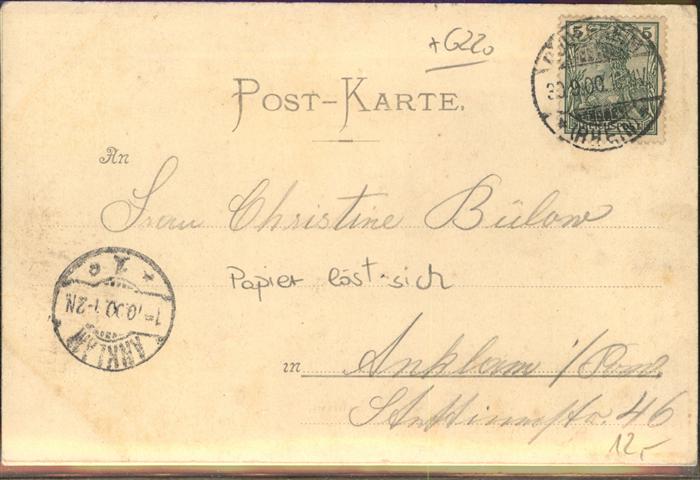 +G220
5 5
30.9.00.
(RHEIN)
POST-KARTE.
An
Frau Christine Bülow
Papier löst sich
* 1. c
1.10.00.1-2N.
ANKLAM
in Anklam i/Pom.
46
12,-